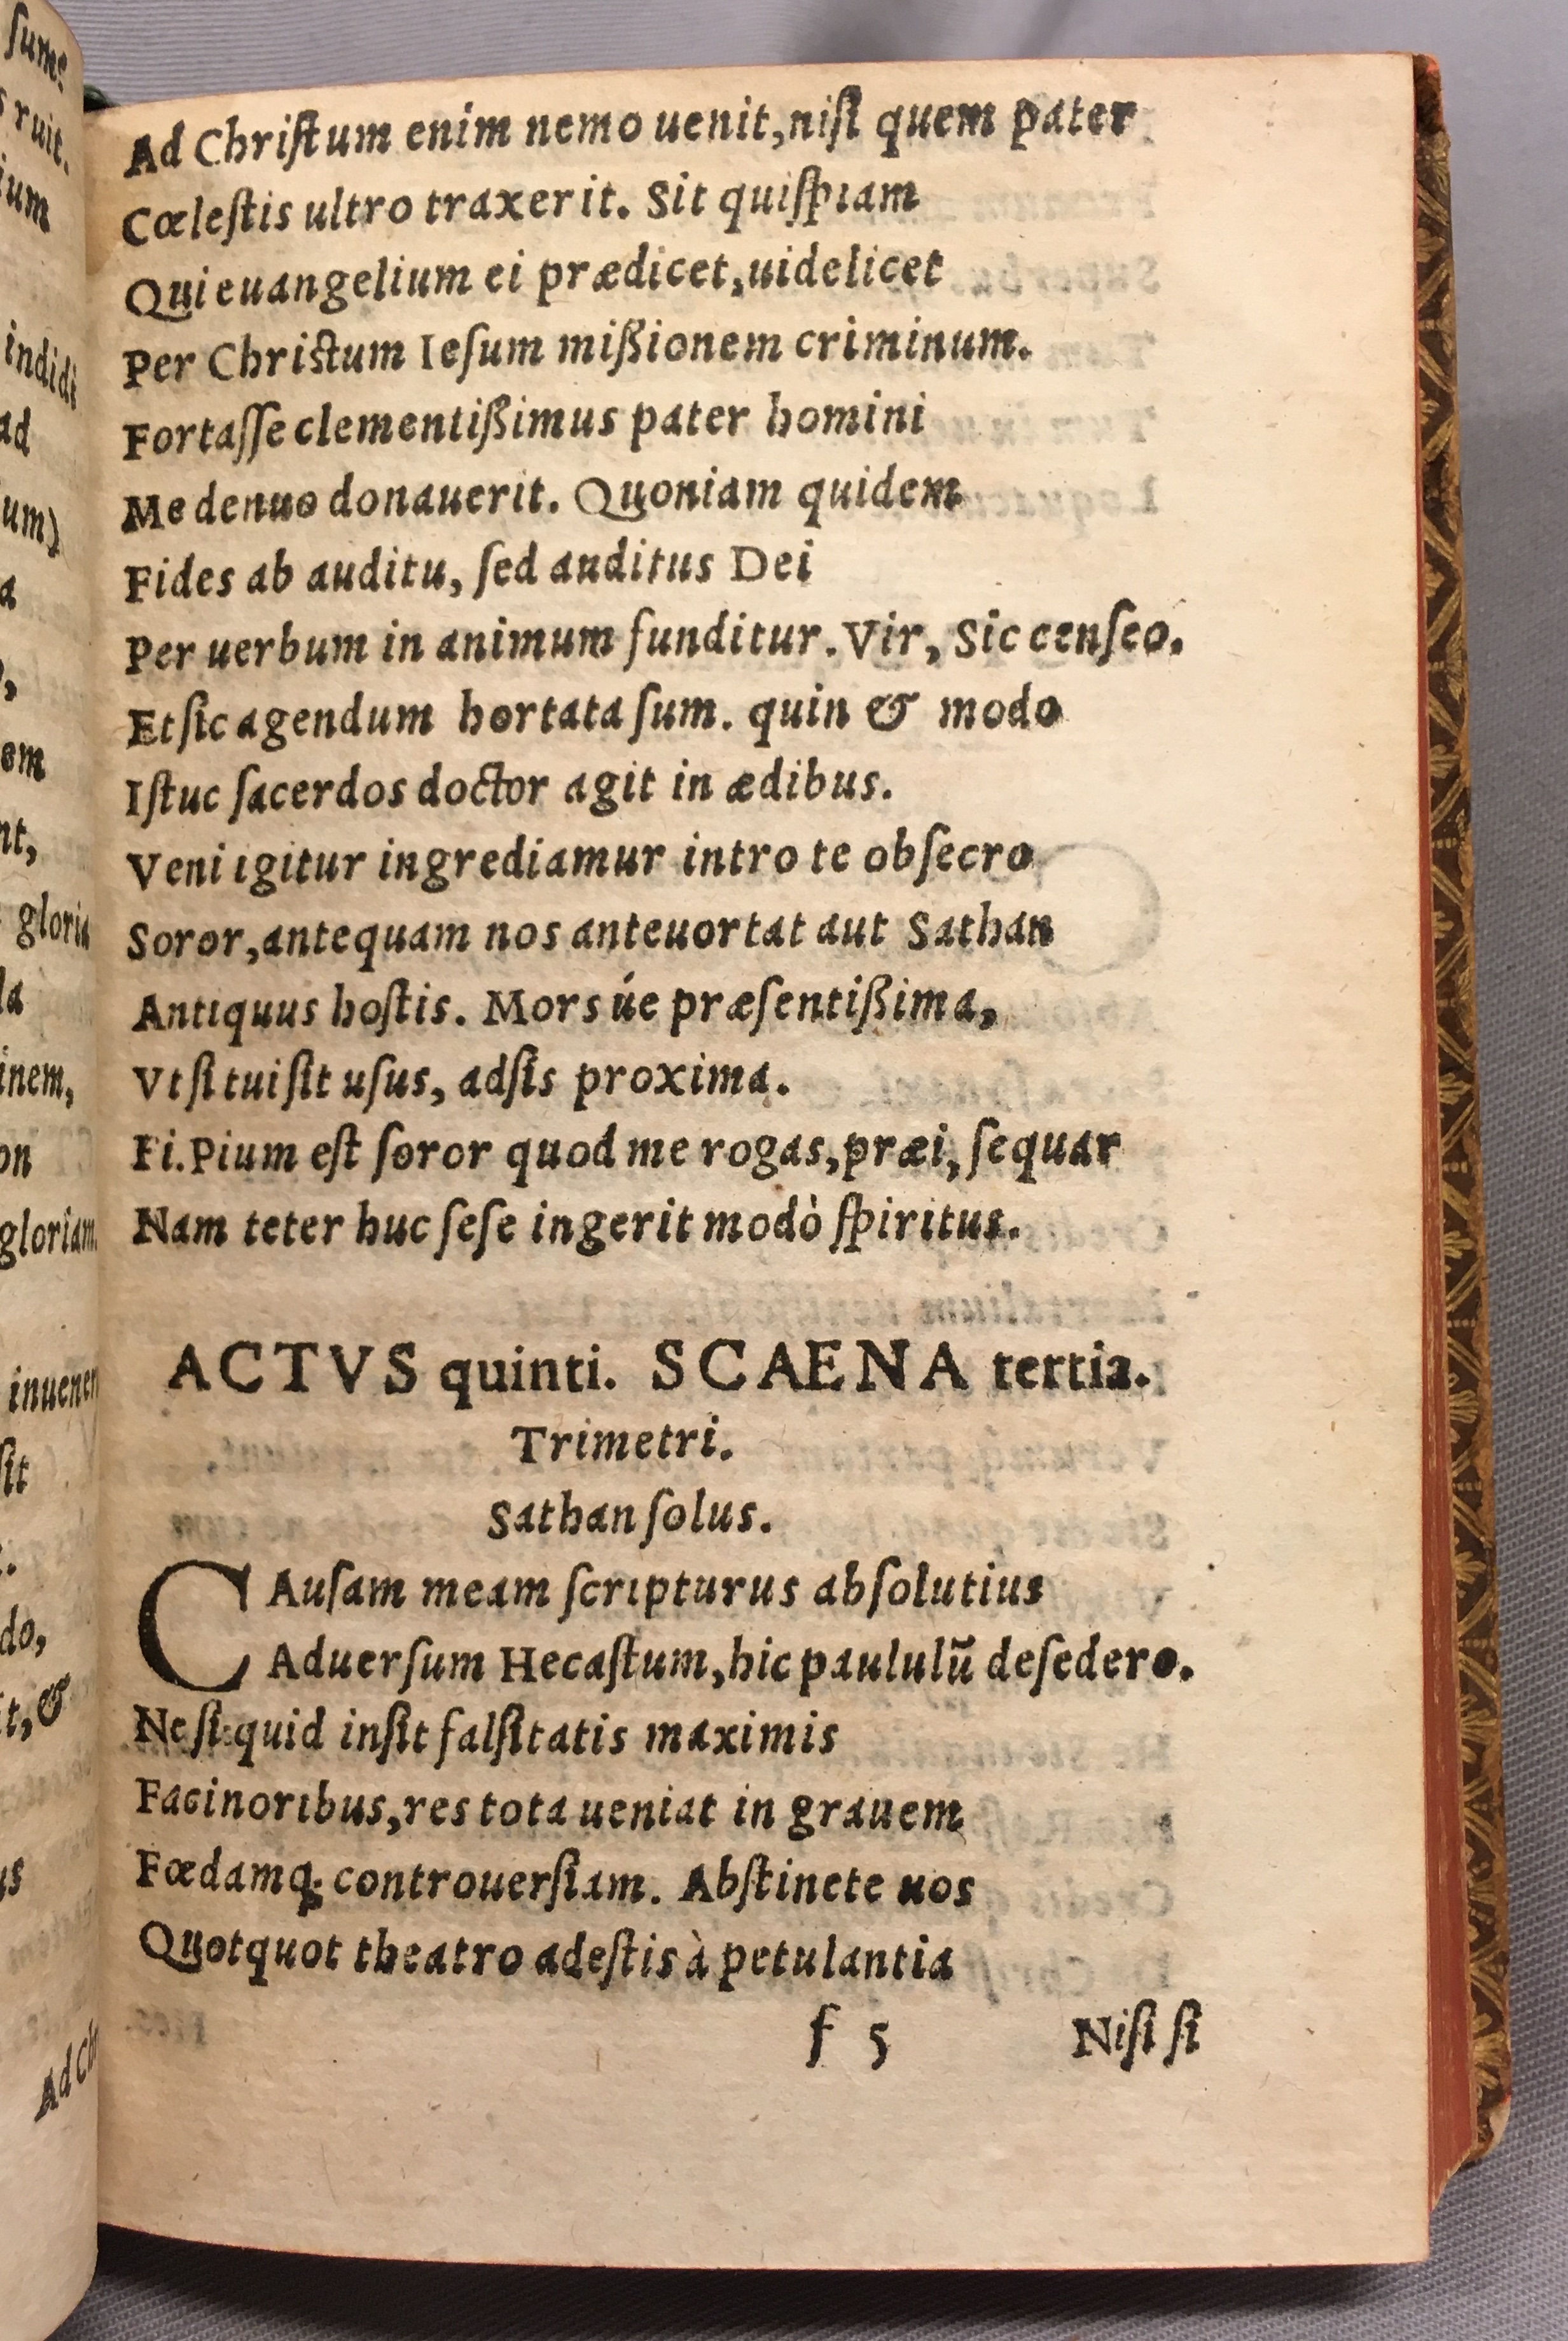 Ad Chriſtum enim nemo uenit,niſi quem pater
Cœleſtis ultro traxerit. Sit quiſpiam
Qui euangelium ei prædicet,uidelicet
Per Chriſtum Ieſum mißionem criminum.
Fortaſſe clementißimus pater homini
Me denuo donauerit. Quoniam quidem
Fides ab auditu, ſed auditus Dei
Per uerbum in animum funditur. Vir, Sic cenſeo.
Et ſic agendum hortata ſum. quin & modo
Iſtuc ſacerdos doctor agit in ædibus.
Veni igitur ingrediamur intro te obſecro
Soror,antequam nos anteuortat aut Sathan
Antiquus hoſtis. Mors úe præſentißima,
Vt ſi tui ſit uſus, adſis proxima.
Fi.Pium eſt ſoror quod me rogas,præi, ſequar
Nam teter huc ſeſe ingerit modò ſpiritus.
ACTVS quinti. SCAENA tertia.
Trimetri.
Sathan ſolus.
CAuſam meam ſcripturus abſolutius
Aduerſum Hecaſtum,hic paululū deſedero.
Ne ſi quid inſit falſitatis maximis
Facinoribus,res tota ueniat in grauem
Fœdamq; controuerſiam. Abſtinete uos
Quotquot theatro adeſtis à petulantia
f 5 Niſi ſi